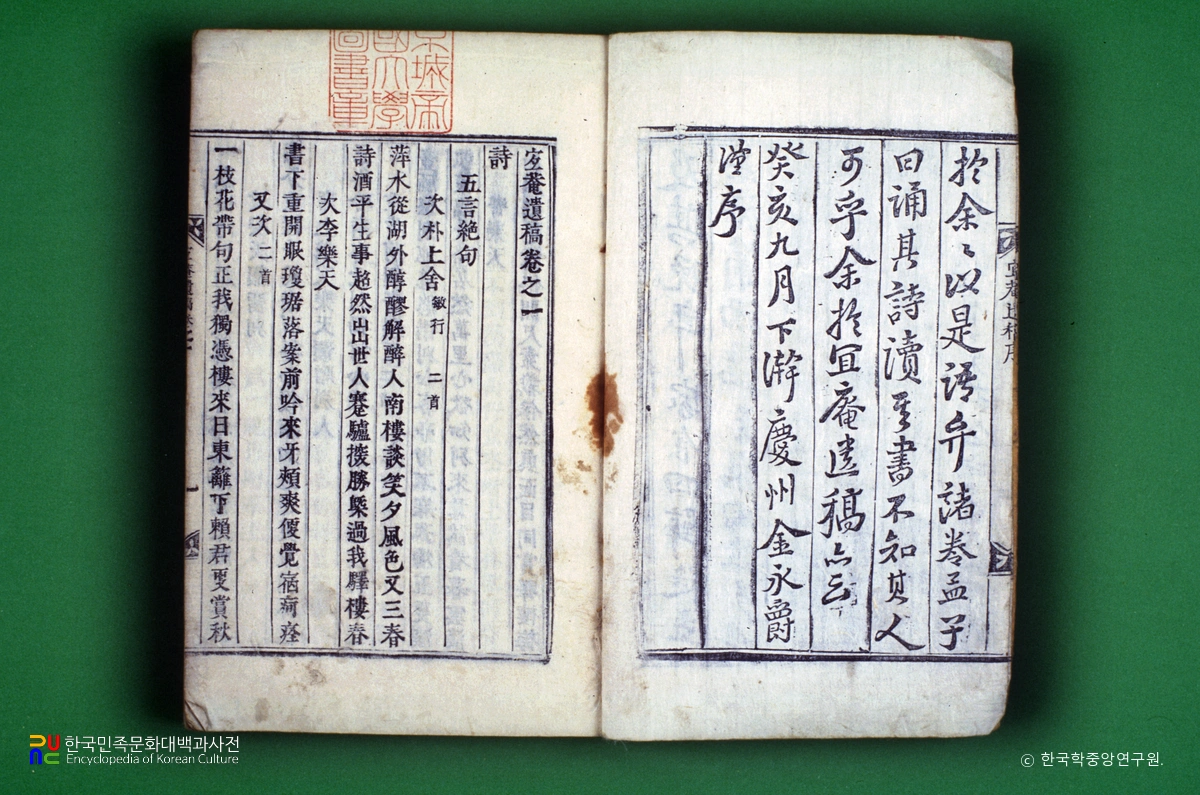 於余余以是語弁諸卷孟子
曰誦其詩讀其書不知其人
可乎余於宜庵遺稿亦云
癸亥九月下澣慶州金永爵
謹序
宜菴遺稿卷之一
詩
五言絶句
次朴上舍 敏行 二首
萍水從湖外醇醪解醉人南樓談笑夕風色又三春
詩酒平生事超然出世人蹇驢探勝槩過我驛樓春
次李樂天
書下重開眼瓊琚落案前吟來牙頰爽便覺宿痾痊
又次 二首
一枝花帶句正我獨憑樓來日東籬下賴君更賞秋
한국민족문화대백과사전
Encyclopedia of Korean Culture
ⓒ 한국학중앙연구원.